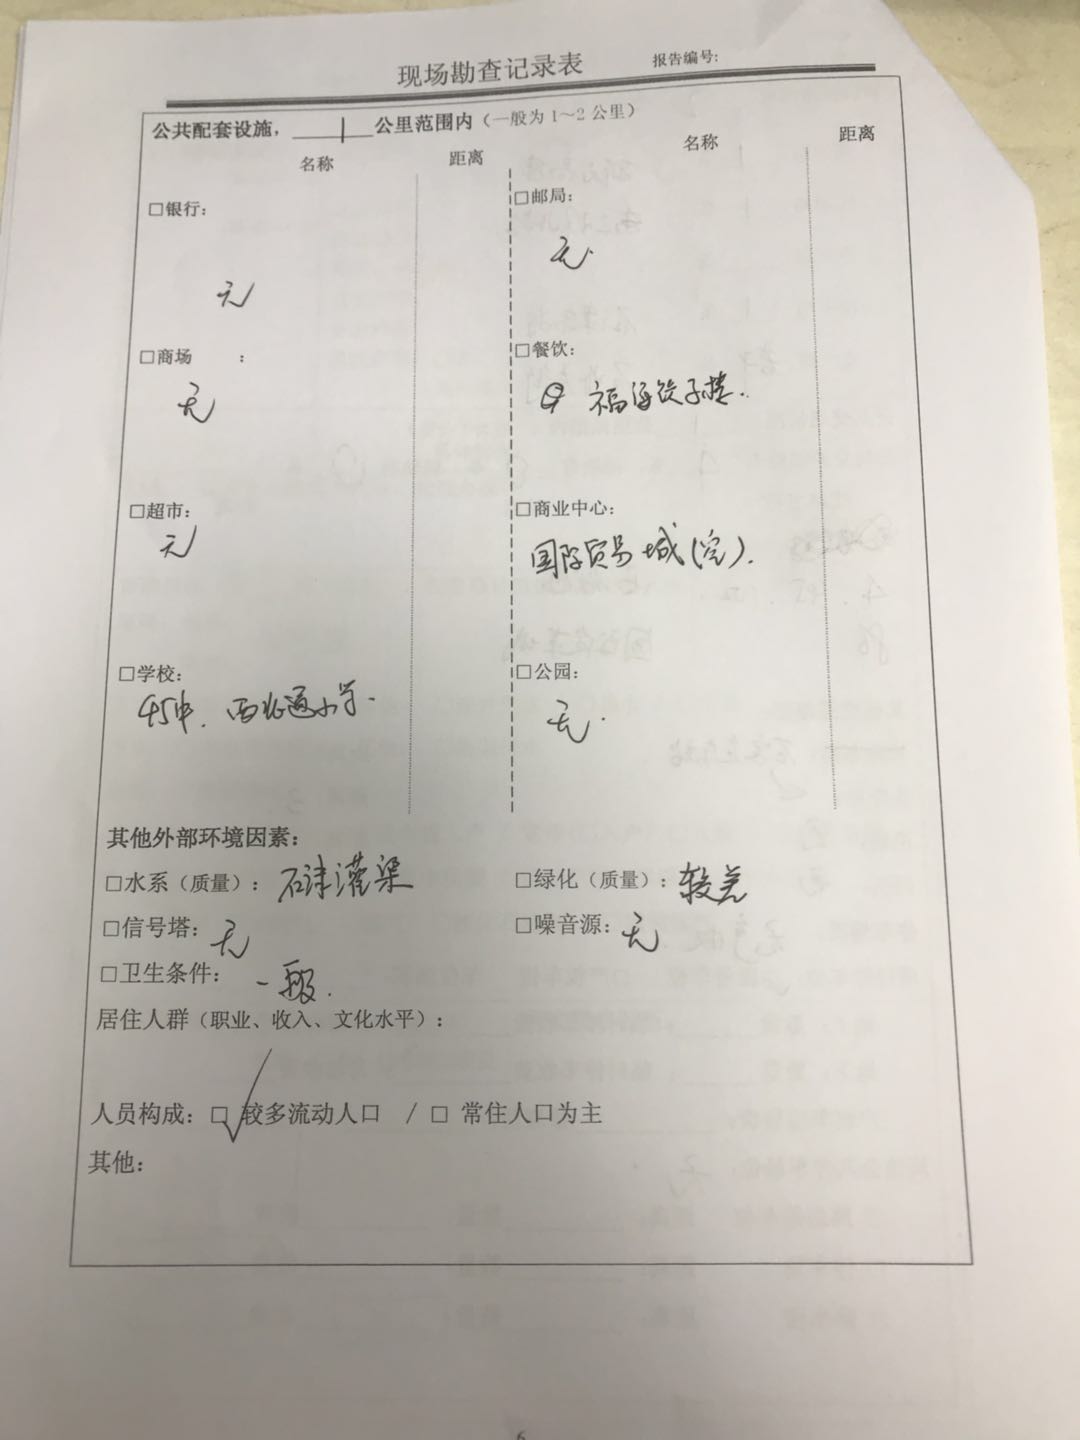 现场勘查记录表 报告编号:
公共配套设施，1公里范围内（一般为1～2公里）
名称 距离 名称 距离
□银行: □邮局:
无 无.
□商场 : □餐饮:
无 福源饺子楼.
□超市: □商业中心:
无 国际贸易城(完).
□学校: □公园:
45中. 西北通小学. 无.
其他外部环境因素:
□水系（质量）: 石津灌渠 □绿化（质量）: 较差
□信号塔: 无 □噪音源: 无
□卫生条件: 一般.
居住人群（职业、收入、文化水平）:
人员构成: □ 较多流动人口 / □ 常住人口为主
其他:
6